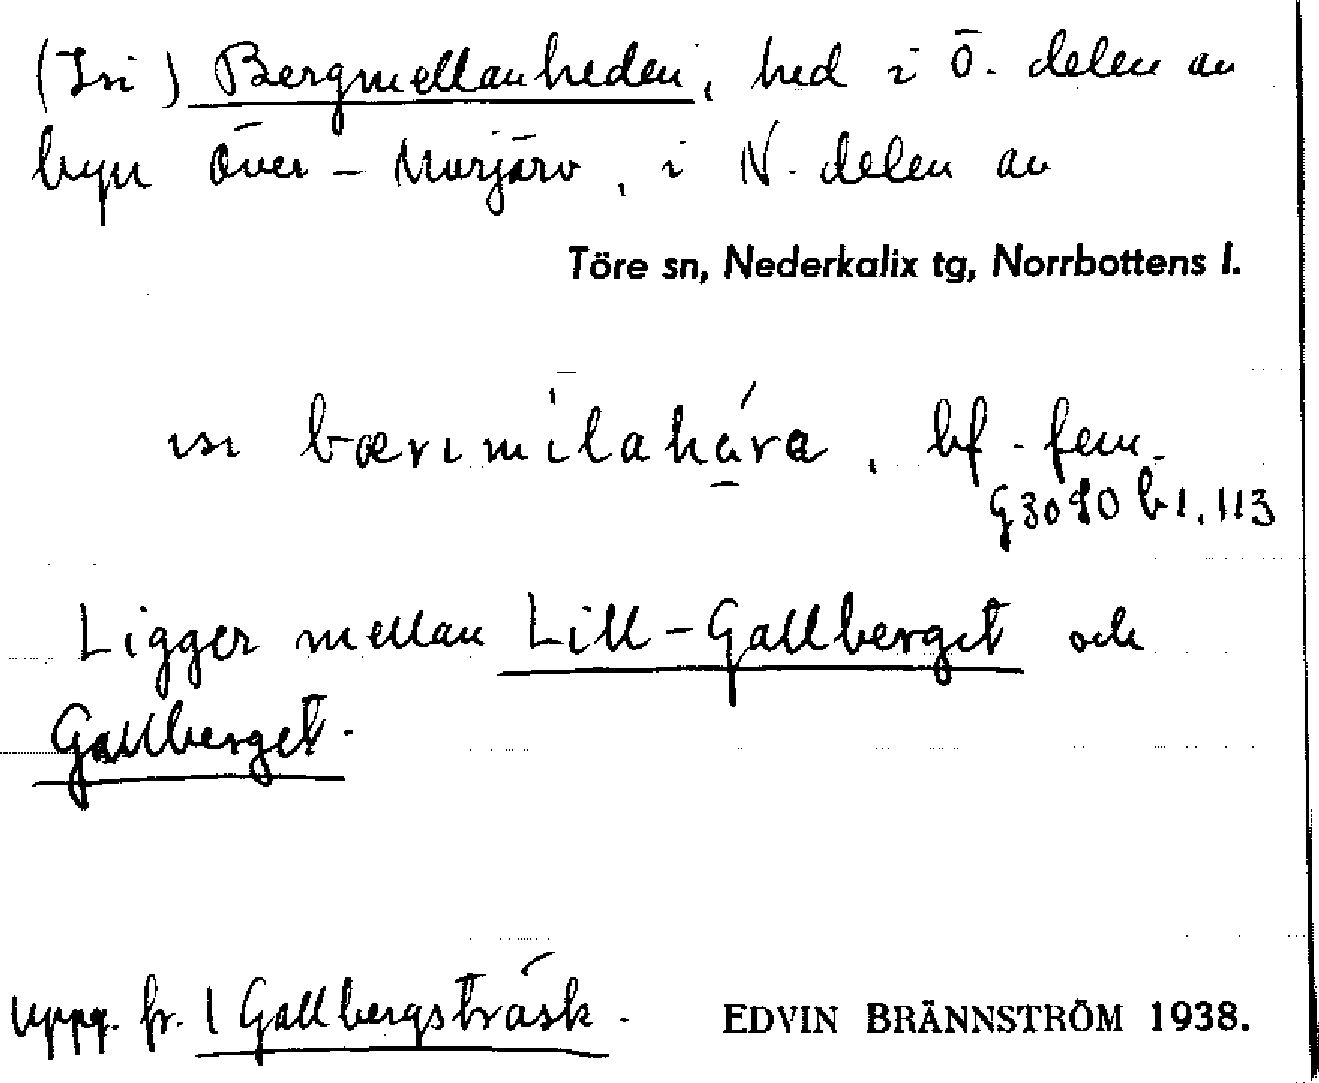 (Isi) Bergmellanheden, hed i Ö. delen av
byn Över-Morjärv, i N. delen av
Töre sn, Nederkalix tg, Norrbottens l.
ısı bærımılahára, bf. fem.
G3080 b1.113
Ligger mellan Lill-Gallberget och
Gallberget.
uppg. fr. 1 Gallbergsträsk. EDVIN BRÄNNSTRÖM 1938.